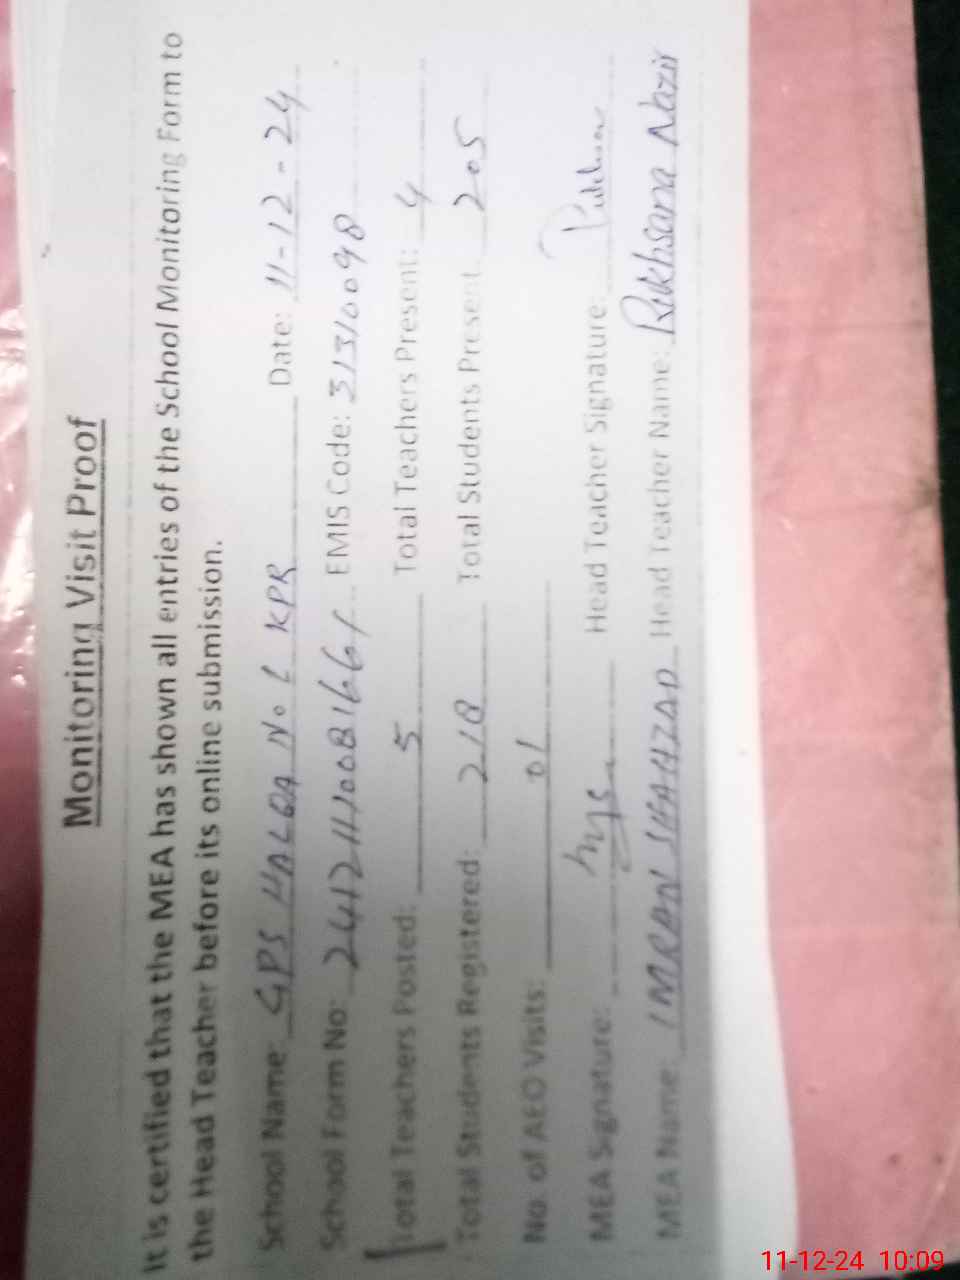 Monitoring Visit Proof
It is certified that the MEA has shown all entries of the School Monitoring Form to
the Head Teacher before its online submission.
School Name: GPS HALQA No 1 KPR Date: 11-12-24
School Form No: EMIS Code: 31310098
Total Teachers Posted: 5 Total Teachers Present: 4
Total Students Registered: 218 Total Students Present 205
No. of AEO Visits: 01
MEA Signature: Head Teacher Signature:
MEA Name: IMRAN SHAHZAD Head Teacher Name: Rukhsana Nazir
11-12-24 10:09